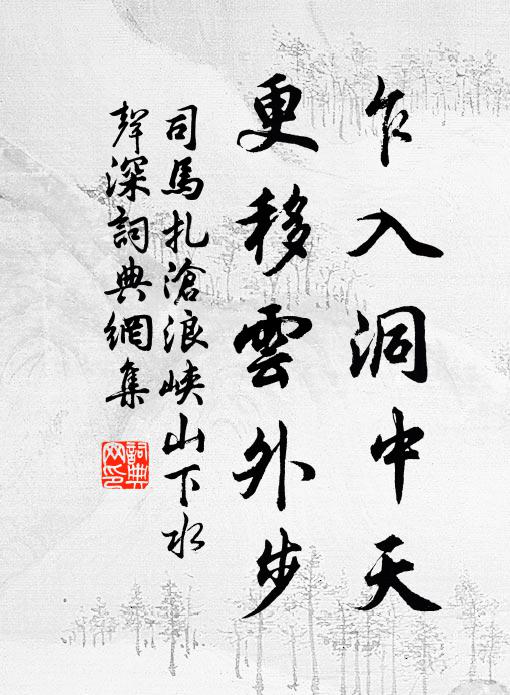 乍入洞中天
更移雲外步
司馬扎滄浪峽山下水
聲深詞典網集
詞典網印